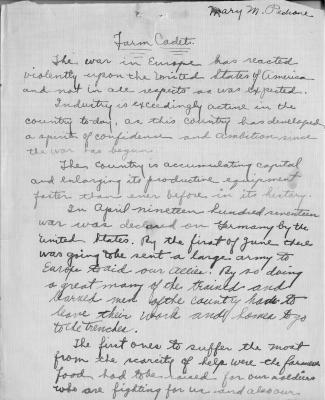 Mary M. Pedrone
Farm Cadet.
The war in Europe has reacted
violently upon the United States of America
and not in all respects as was expected.
Industry is exceedingly active in the
country today, as this country has developed
a spirit of confidence and ambition since
the war has begun.
The country is accumulating capital
and enlarging its productive equipment
faster than ever before in its history.
In April nineteen hundred seventeen
war was declared on Germany by the
United States. By the first of June there
was going to be sent a large army to
Europe to aid our Allies. By so doing
a great many of the trained and
learned men of the country had to
leave their work and homes to go
to the trenches.
The first ones to suffer the most
from the scarcity of help were the farmers
food had to be raised for our soldiers
who are fighting for us and also our